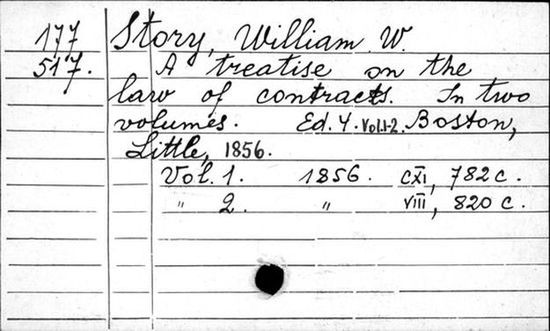 177 Story, William W.
517. A treatise on the
law of contracts. In two
volumes. Ed. 4. Vol.1-2. Boston,
Little, 1856.
Vol. 1. 1856. cXI, 782 c.
" 2. " VIII, 820 c.